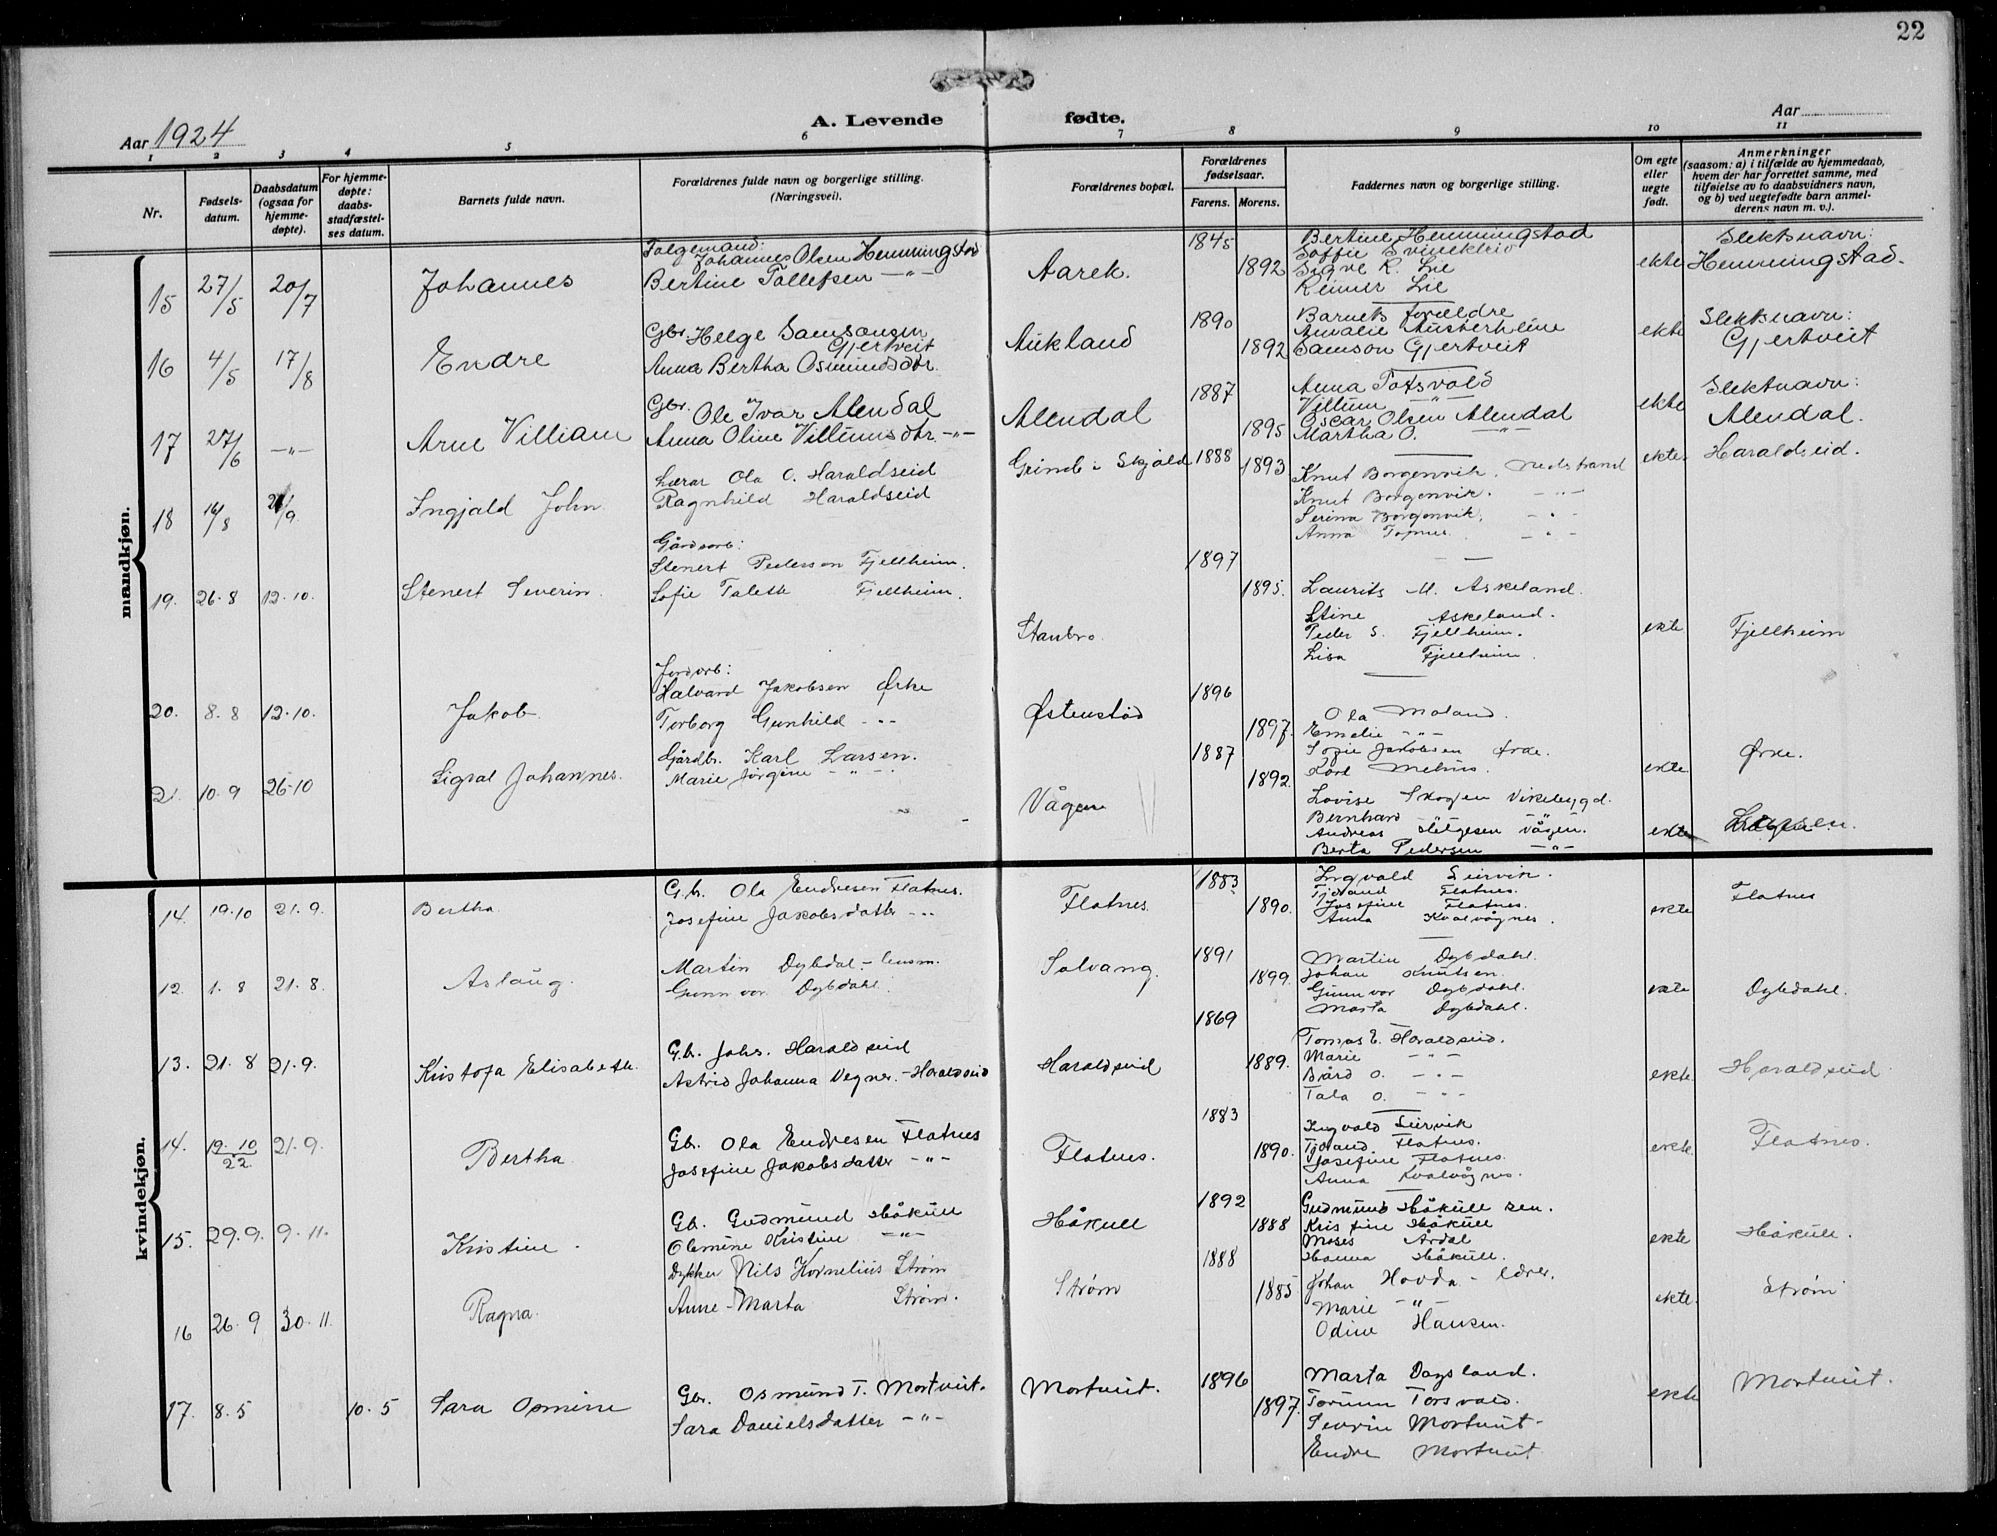 22
Aar 1924
A. Levende fødte.
Aar
1 2 3 4 5 6 7 8 9 10 11
Nr.
Fødsels-datum.
Daabsdatum (ogsaa for hjemme-døpte).
For hjemme-døpte: daabs-stadfæstel-ses datum.
Barnets fulde navn.
Forældrenes fulde navn og borgerlige stilling. (Næringsvei).
Forældrenes bopæl.
Forældrenes fødselsaar.
Farens. Morens.
Faddernes navn og borgerlige stilling.
Om egte eller uegte født.
Anmerkninger (saasom: a) i tilfælde av hjemmedaab, hvem der har forrettet samme, med tilføielse av to daabsvidners navn, og b) ved uegtefødte barn anmel-derens navn m. v.).
mandkjøn.
15 27/5 20/7 Johannes
Johannes Olsen Hemmingstad
Bertine Tollefsen -"-
Aarek. 1845 1892
Bertine Hemmingstad
Soffie Svinekleiv
Signe K. Lie
Reimer Lie
ekte Slektsnavn: Hemmingstad.
16 4/5 17/8 Endre
Gbr. Helge Samsonsen Gjertveit
Anna Bertha Osmundsdtr.
Aukland 1890 1892
Barnets forældre
Amalie Austerheim
Samson Gjertveit
ekte Slektsnavn: Gjertveit
17 27/6 -"- Arne Villiam
Gbr. Ole Ivar Alendal
Anna Oline Villumsdtr. -"-
Alendal 1887 1895
Anna Totsvold
Villum -"-
Oscar Olsen Alendal
Martha O. -"-
ekte Slektnavn: Alendal.
18 16/8 21/9 Ingjald John
Lærar Ola O. Haraldseid
Ragnhild Haraldseid
Grinde i Skjold 1888 1893
Knut Borgenvik. Nedstrand
Knut Borgenvik. -"-
Serina Borgenvik. -"-
Anna -"-
ekte Haraldseid.
19. 26.8 12.10. Stenert Severin
Gårdarb:
Stenert Pederson Fjellheim.
Sofie Talette Fjellheim.
Stanbro. 1897 1895.
Laurits M. Askeland.
Stine Askeland.
Peder S. Fjellheim.
Lisa Fjellheim.
ekte Fjellheim
20. 8.8 12.10. Jakob
Jordarb:
Halvard Jakobsen Ørke
Torborg Gunhild -"-
Østenstad 1896 1897.
Ola Moland.
Emelie -"-
Sofie Jakobsen Ørke.
Karl Mehus.
ekte Ørke.
21. 10.9 26.10 Sigral Johannes.
Gårdbr. Karl Larsen.
Marie Jørgine -"-
Vågen 1887 1892.
Lovise Skogen Vikebygd.
Bernhard -"-
Andreas Helgesen Vågen.
Berta Pedersen -"-
ekte Larsen.
kvindekjøn.
14. 19.10 21.9. Bertha
G.b. Ola Endresen Flatnes.
Josefine Jakobsdatter -"-
Flatnes. 1883 1890.
Ingvald Leirvik.
Tjeland Flatnes.
Josefine Flatnes.
Anna Kvalvågnes.
ekte Flatnes
12. 1.8 21.8. Aslaug.
Martin Dybdal - lensm.
Gunnvor Dybdahl.
Solvang. 1891 1899.
Martin Dybdahl.
Johan Knutsen.
Gunnvor Dybdahl.
Marta Dybdahl.
ekte Dybdahl.
13. 21.8 21.9. Kristofa Elisabeth.
G.b. Johs. Haraldseid
Astrid Johanna Vegner - Haraldseid
Haraldseid 1869 1889.
Tomas E. Haraldseid.
Marie -"-
Bård O. -"-
Tala O. -"-
ekte. Haraldseid
14. 19.10/22. 21.9. Bertha.
Gb. Ola Endresen Flatnes
Josefine Jakobsdatter -"-
Flatnes. 1883 1890.
Ingvald Leirvik
Tjeland Flatnes.
Josefine Flatnes.
Anna Kvalvågnes.
ekte. Flatnes.
15. 29.9. 9.11. Kristine.
Gb. Gudmund Håkull
Olemine Kristine -"-
Håkull 1892 1888
Gudmund Håkull sen.
Kristine Håkull
Moses Ardal
Hanna Håkull.
ekte Håkull.
16 26.9 30.11. Ragna.
Dykker Nils Kornelius Strøm
Anne-Marta Strøm.
Strøm 1888 1885
Johan Hovda - lærer.
Marie -"-
Odine Hansen.
ekte. Strøm
17. 8.5 10.5 Sara Osmine
Gbr. Osmund T. Mortveit.
Sara Danielsdatter -"-
Mortveit. 1896 1897.
Marta Dagsland.
Torunn Torsvald.
Severin Mortveit.
Endre Mortveit.
ekte Mortveit.